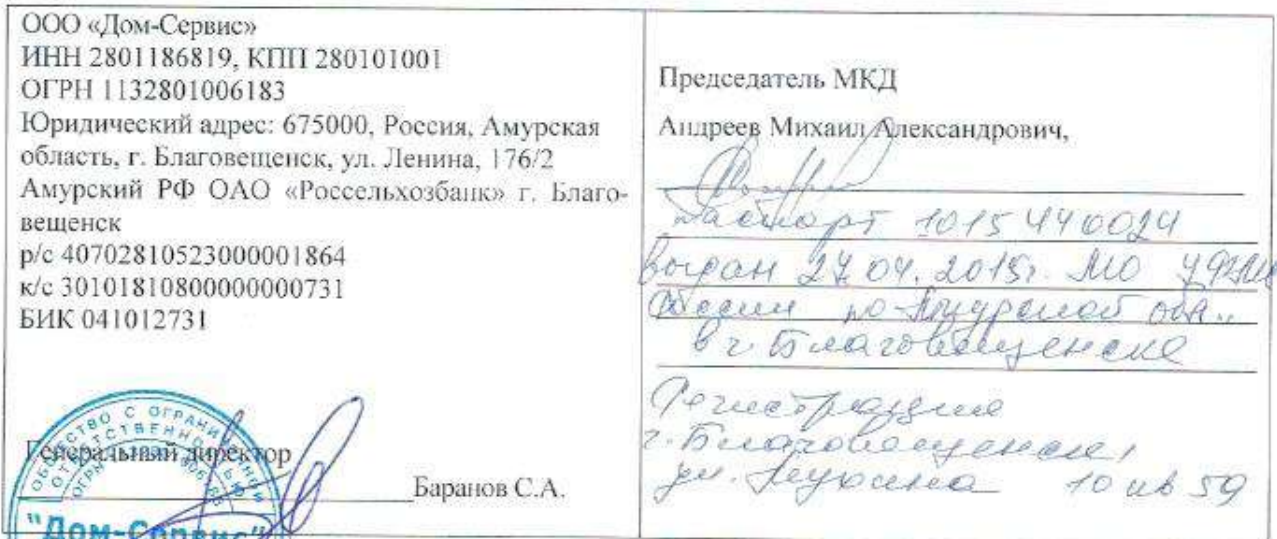 ООО «Дом-Сервис»
ИНН 2801186819, КПП 280101001
ОГРН 1132801006183
Юридический адрес: 675000, Россия, Амурская
область, г. Благовещенск, ул. Ленина, 176/2
Амурский РФ ОАО «Россельхозбанк» г. Благо-
вещенск
р/с 40702810523000001864
к/с 30101810800000000731
БИК 041012731
ОБЩЕСТВО С ОГРАНИЧЕННОЙ
ОТВЕТСТВЕННОСТЬЮ
Генеральный директор
Баранов С.А.
"Дом-Сервис"
Председатель МКД
Андреев Михаил Александрович,
паспорт 1015 440024
выдан 27.04.2015г. МО УФМС
России по Амурской обл.
в г. Благовещенске
Регистрация
г. Благовещенск,
ул. 10 кв 59